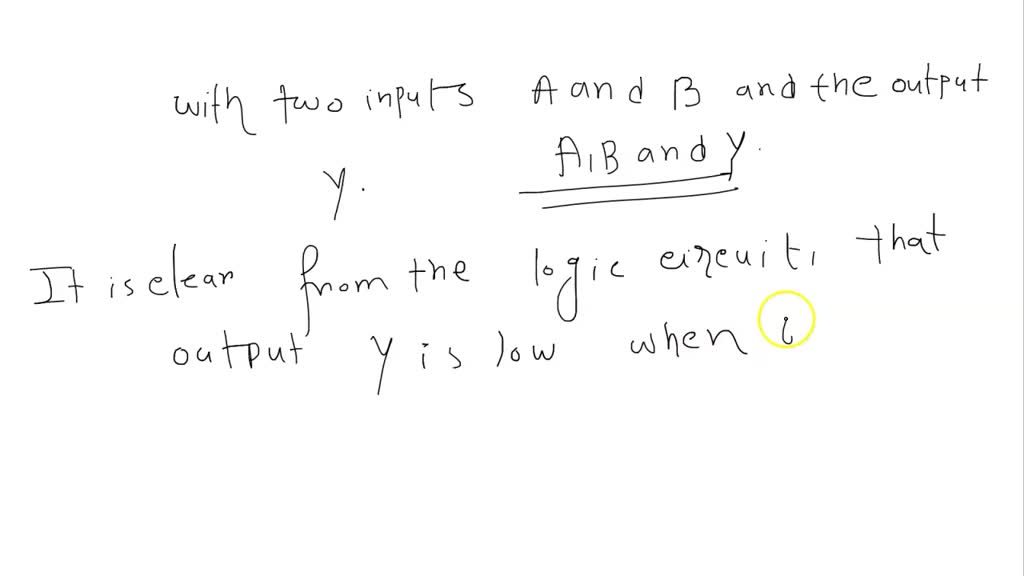 with two inputs A and B and the output
Y. A, B and Y.
It is clear from the logic circuit, that
output Y is low when i